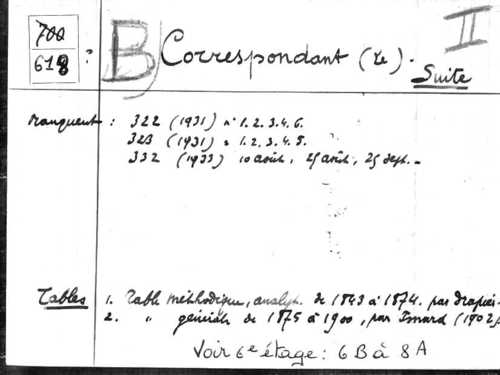 700 B) Correspondant (Le). II
618 : Suite
Manquent : 322 (1931) n° 1. 2. 3. 4. 6.
323 (1931) n 1. 2. 3. 4. 5.
332 (1933) 10 août, 25 août, 25 sept.
Tables 1. Table méthodique, analyt. de 1843 à 1874. par
2. " générale de 1875 à 1900, par (1902
Voir 6e étage : 6 B à 8 A